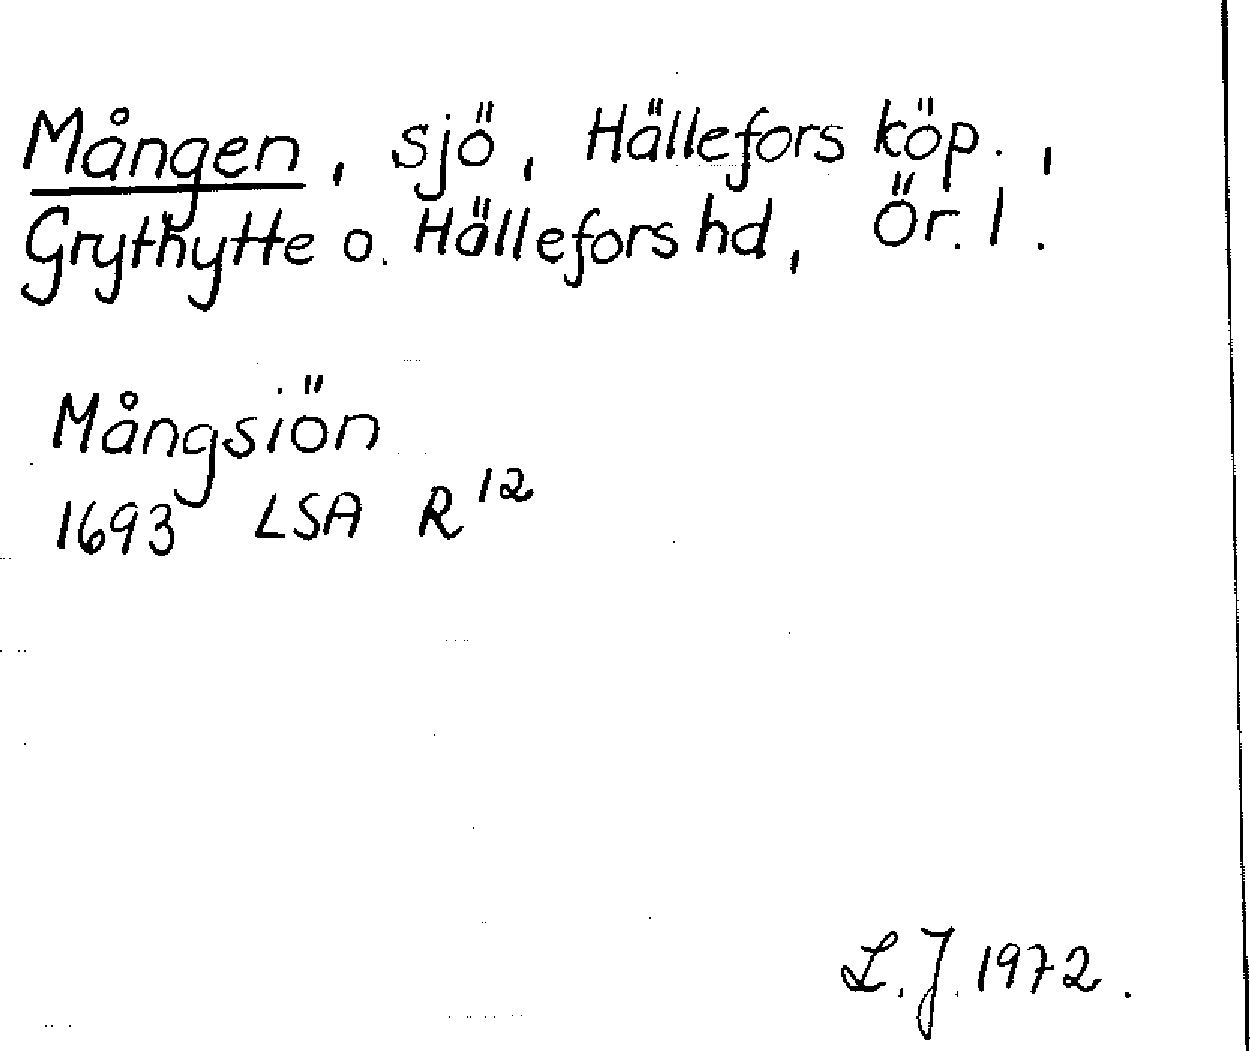 Mången, sjö, Hällefors köp.,
Grythytte o. Hällefors hd, Ör. l.
Mångsiön
1693 LSA R 12
L. J. 1972.